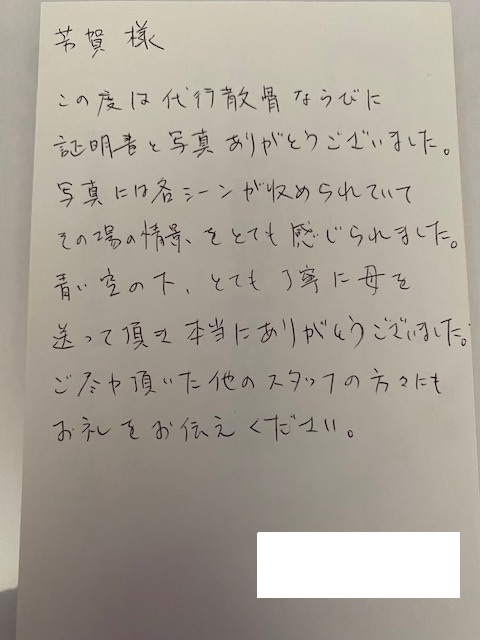 芳賀 様
この度は代行散骨ならびに
証明書と写真ありがとうございました。
写真には各シーンが収められていて
その場の情景をとても感じられました。
青い空の下、とても丁寧に母を
送って頂き本当にありがとうございました。
ご尽力頂いた他のスタッフの方々にも
お礼をお伝えください。